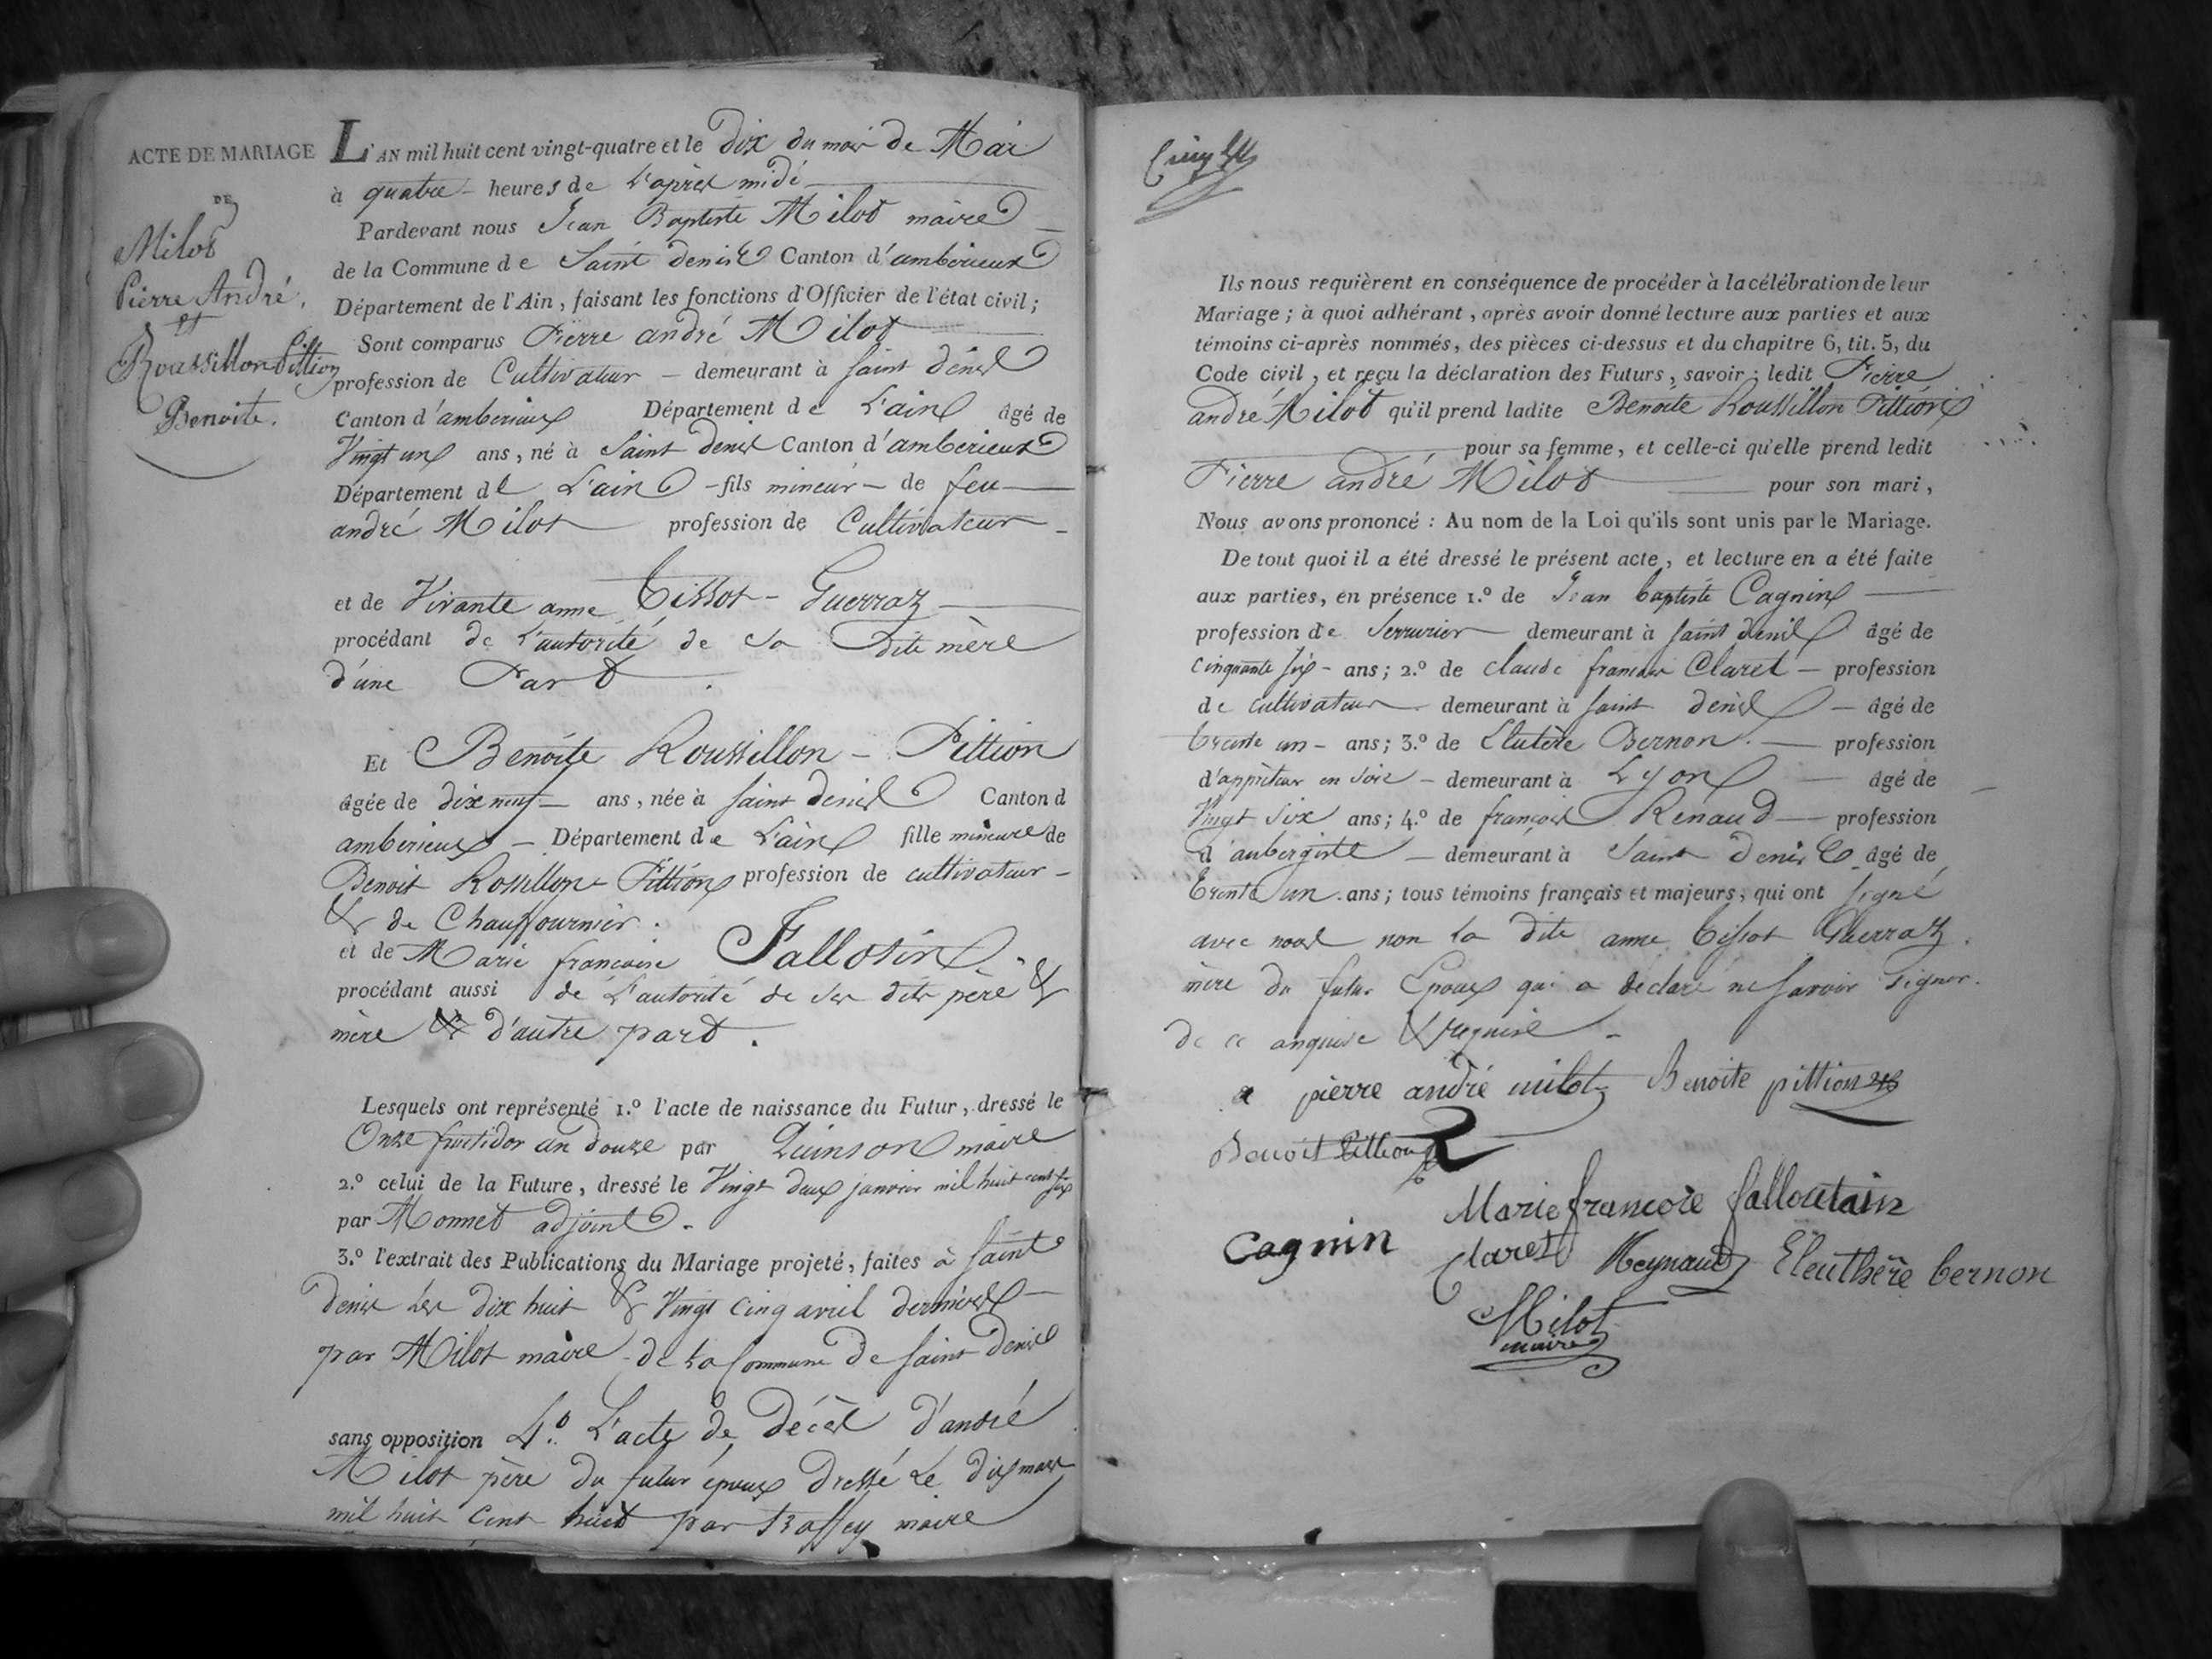 ACTE DE MARIAGE
DE
Milot
Pierre André.
et
Roussillon Pittion
Benoite.
L'AN mil huit cent vingt-quatre et le Dix du mois de Mai
à quatre heures de L'après midi
Pardevant nous Jean Baptiste Milot maire
de la Commune de Saint denis Canton d'ambérieux
Département de l'Ain, faisant les fonctions d'Officier de l'état civil;
Sont comparus Pierre andré Milot
profession de Cultivateur – demeurant à saint denis
Canton d'ambérieux Département de L'ain âgé de
Vingt un ans, né à Saint denis Canton d'ambérieux
Département de L'ain – fils mineur – de feu
andré Milot profession de Cultivateur –
et de Vivante anne Tissot – Guerraz
procédant de L'autorité de sa Dite mère
d'une Part.
Et Benoite Roussillon – Pittion
âgée de dix neuf – ans, née à saint denis Canton d
ambérieux – Département de L'ain fille mineure de
Benoit Rossillon – Pittion profession de cultivateur –
& de Chauffournier.
et de Marie francoise Fallotin.
procédant aussi de L'autorité de ses dits père &
mère d'autre part.
Lesquels ont représenté 1.º l'acte de naissance du Futur, dressé le
Onze fructidor an douze par Quinson maire
2.º celui de la Future, dressé le Vingt deux janvier mil huit cent six
par Monnet adjoint.
3.º l'extrait des Publications du Mariage projeté, faites à saint
denis Les dix huit & Vingt cinq avril derniers
par Milot maire de La Commune de saint denis
sans opposition 4.º L'acte de décès d'andré
Milot père du futur époux Dressé Le dix mars
mil huit cent huit par maire
Ils nous requièrent en conséquence de procéder à la célébration de leur
Mariage; à quoi adhérant, après avoir donné lecture aux parties et aux
témoins ci-après nommés, des pièces ci-dessus et du chapitre 6, tit. 5, du
Code civil, et reçu la déclaration des Futurs, savoir: ledit Pierre
andré Milot qu'il prend ladite Benoite Roussillon Pittion
pour sa femme, et celle-ci qu'elle prend ledit
Pierre andré Milot pour son mari,
Nous avons prononcé: Au nom de la Loi qu'ils sont unis par le Mariage.
De tout quoi il a été dressé le présent acte, et lecture en a été faite
aux parties, en présence 1.º de Jean baptiste Cagnin
profession de Serrurier demeurant à saint denis âgé de
cinquante six – ans; 2.º de claude francois Claret – profession
de cultivateur demeurant à saint denis – âgé de
trente un – ans; 3.º de Elutère Bernon. profession
d'apprêteur en soie – demeurant à Lyon âgé de
Vingt six ans; 4.º de françois Renaud – profession
d'aubergiste – demeurant à Saint Denis âgé de
trente un. ans; tous témoins français et majeurs, qui ont signé
avec nous non la dite anne Tissot Guerraz.
mère du futur Epoux qui a declaré ne savoir signer.
de ce enquise & requise –
pierre andré milot Benoite pittion
Benoit Pittion
Marie francoise falloutain
Cagnin Claret Reynaud Éleuthère bernon
Milot
maire